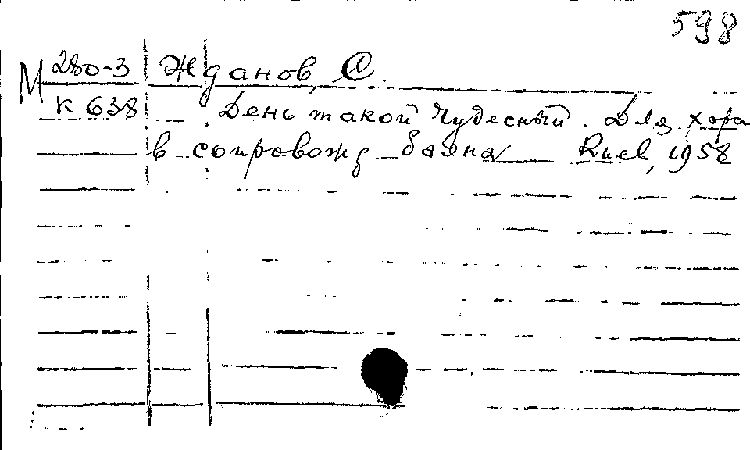 598
М 280-3 Жданов, С.
К 638 День такой чудесный. Для хора
в сопровожд баяна Киев, 1958